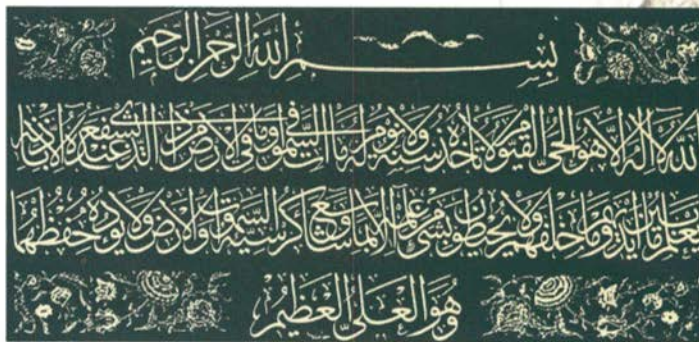 بِسْمِ اللَّهِ الرَّحْمَٰنِ الرَّحِيمِ
اللَّهُ لَا إِلَٰهَ إِلَّا هُوَ الْحَيُّ الْقَيُّومُ لَا تَأْخُذُهُ سِنَةٌ وَلَا نَوْمٌ لَهُ مَا فِي السَّمَاوَاتِ وَمَا فِي الْأَرْضِ مَنْ ذَا الَّذِي يَشْفَعُ عِنْدَهُ إِلَّا بِإِذْنِهِ
يَعْلَمُ مَا بَيْنَ أَيْدِيهِمْ وَمَا خَلْفَهُمْ وَلَا يُحِيطُونَ بِشَيْءٍ مِنْ عِلْمِهِ إِلَّا بِمَا شَاءَ وَسِعَ كُرْسِيُّهُ السَّمَاوَاتِ وَالْأَرْضَ وَلَا يَئُودُهُ حِفْظُهُمَا
وَهُوَ الْعَلِيُّ الْعَظِيمُ